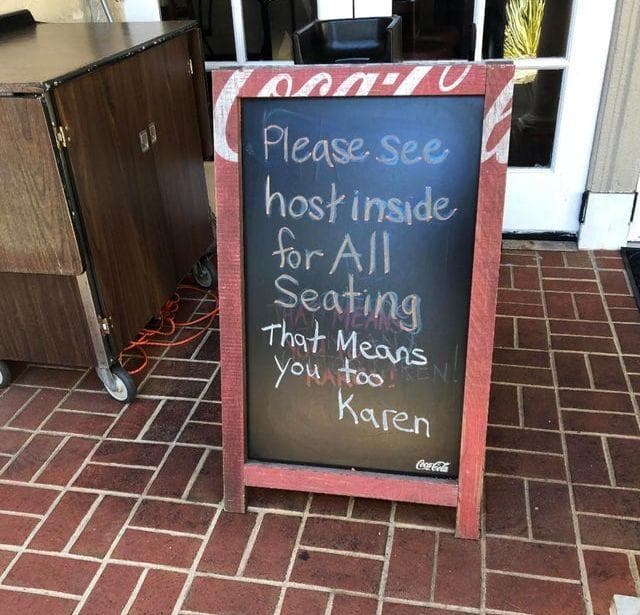 Coca-Cola
Please see
host inside
for All
Seating
That Means
you too
Karen
Coca-Cola